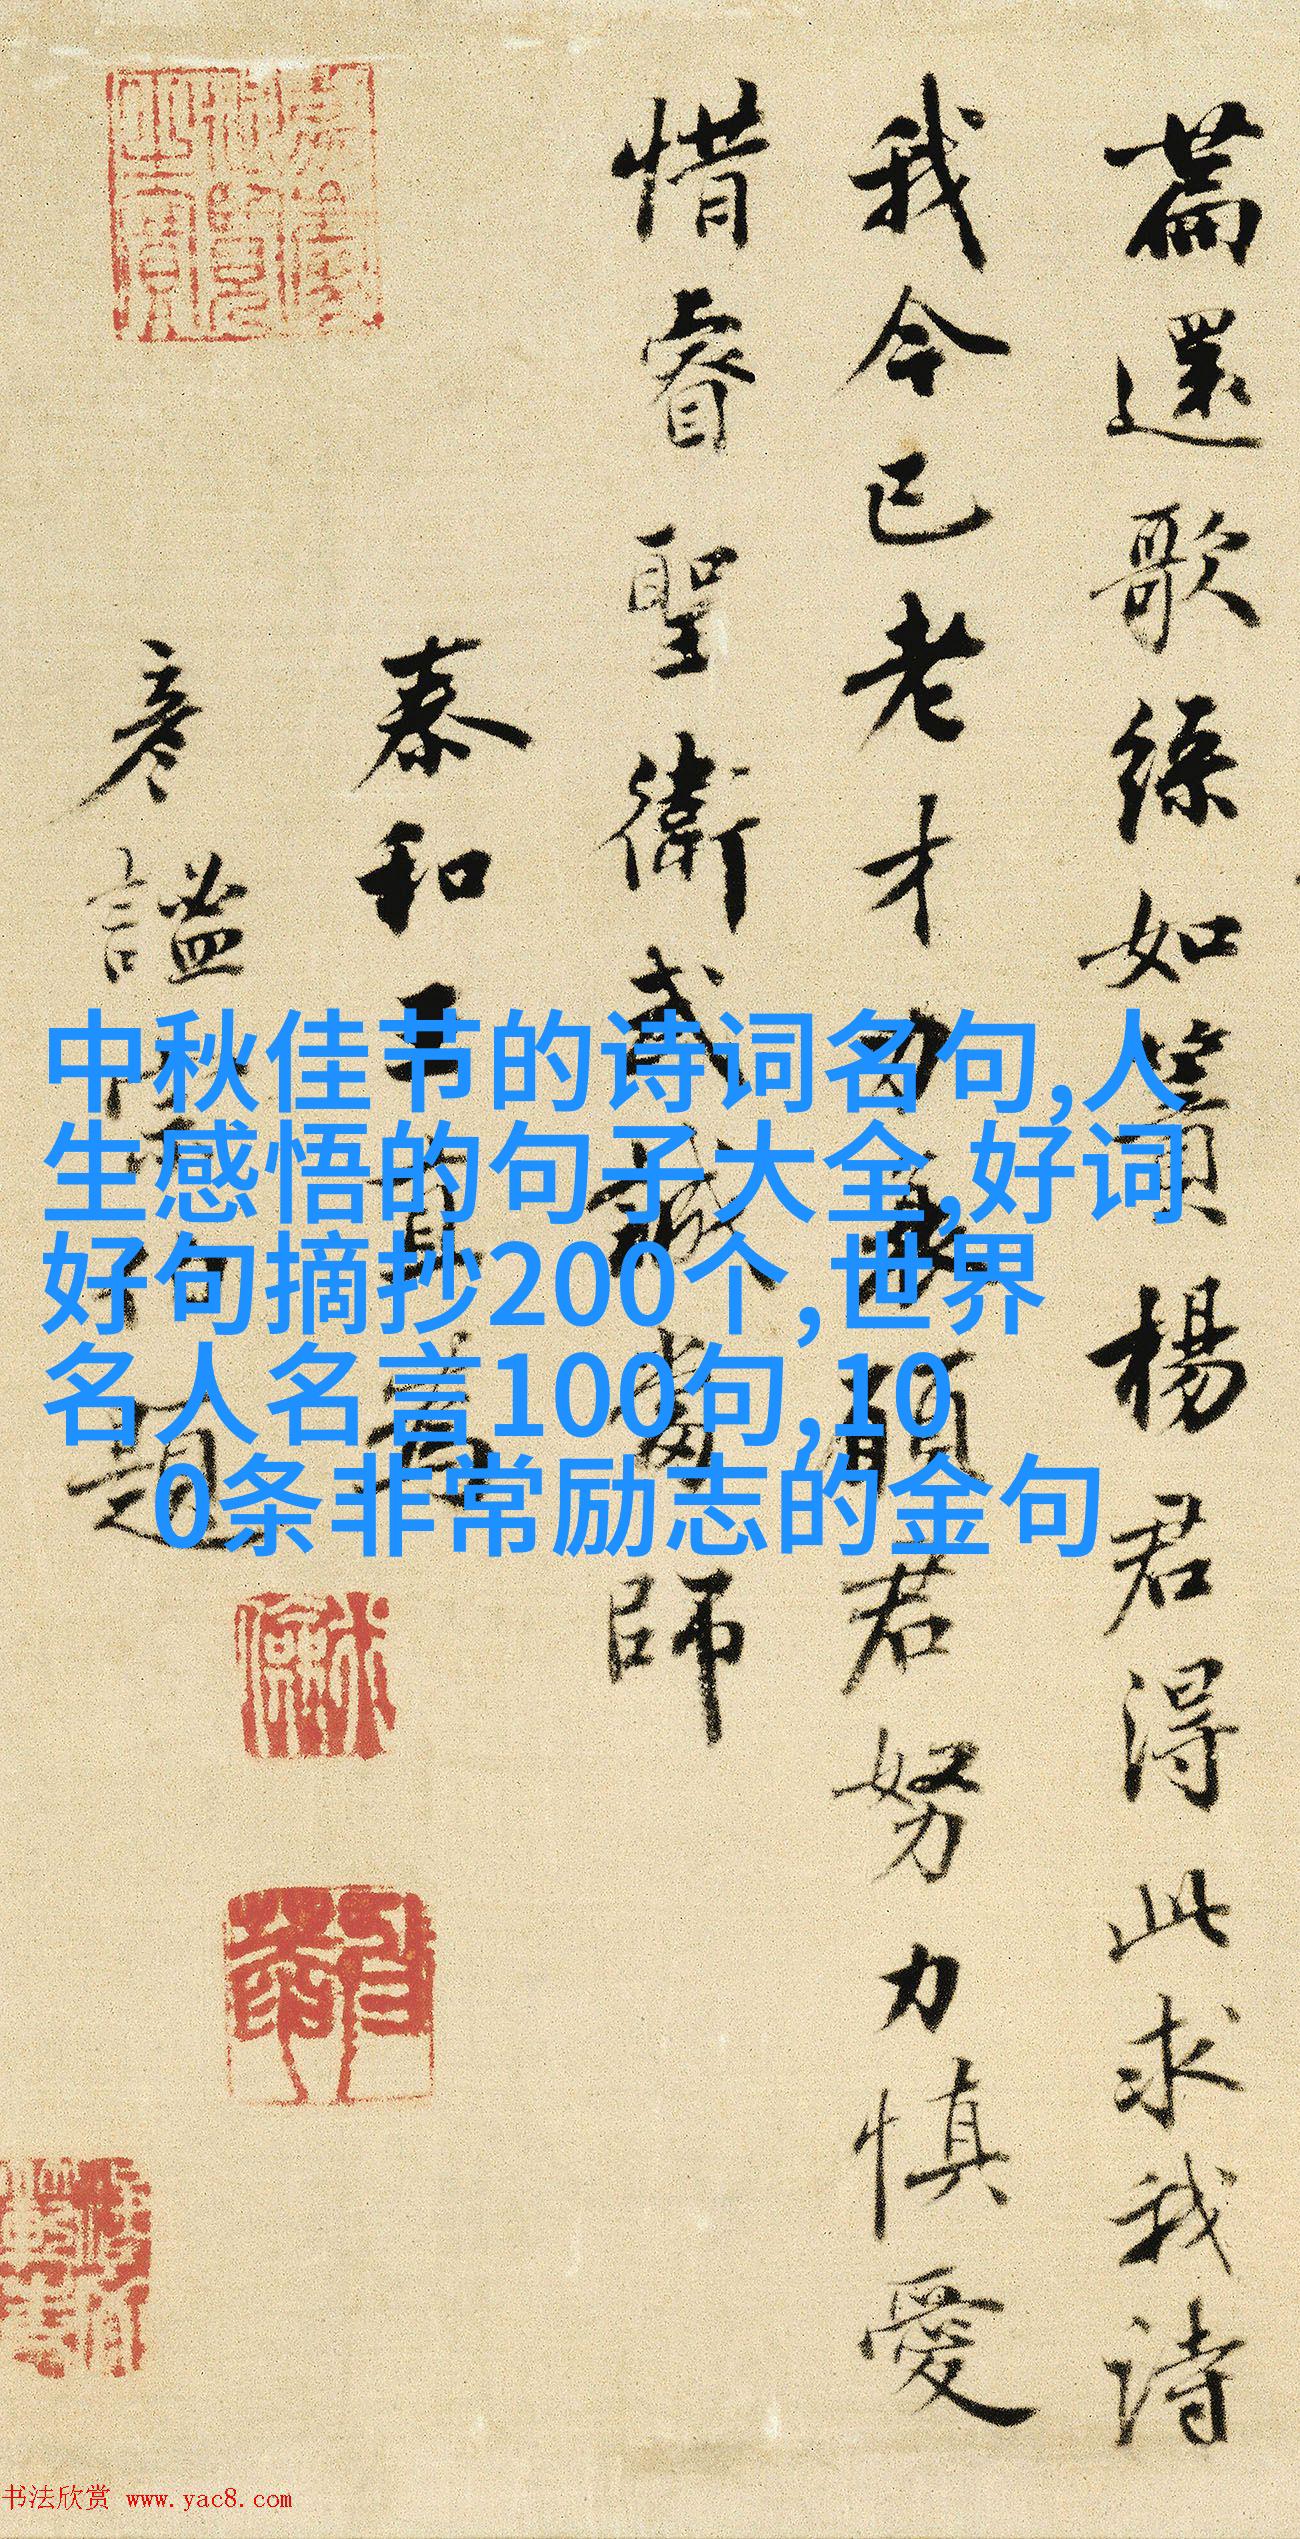 篇還歌綠如簀楊君得此求我詩
我今已老才力衰顧君努力慎愛
惜睿聖衛武誠當師
泰和王直為
彥謐
題
中秋佳节的诗词名句,人
生感悟的句子大全,好词
好句摘抄200个,世界
名人名言100句,10
0条非常励志的金句
书法欣赏 www.yac8.com